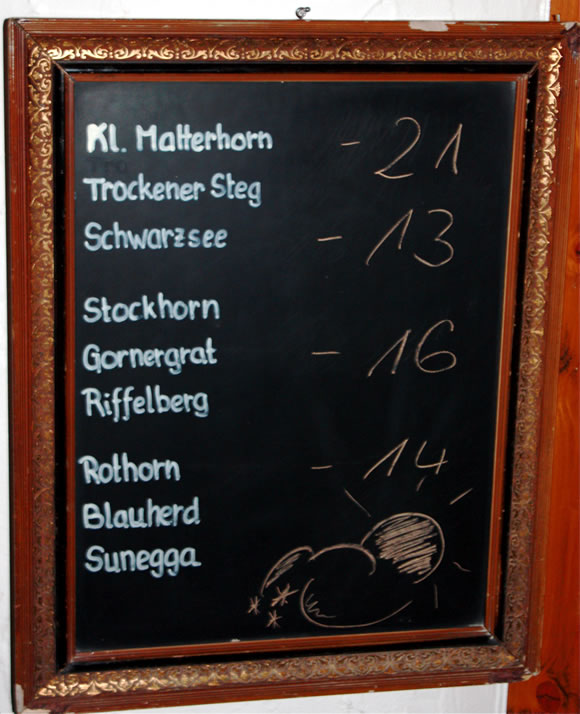 Kl. Matterhorn - 21
Trockener Steg
Schwarzsee - 13
Stockhorn
Gornergrat - 16
Riffelberg
Rothorn - 14
Blauherd
Sunegga